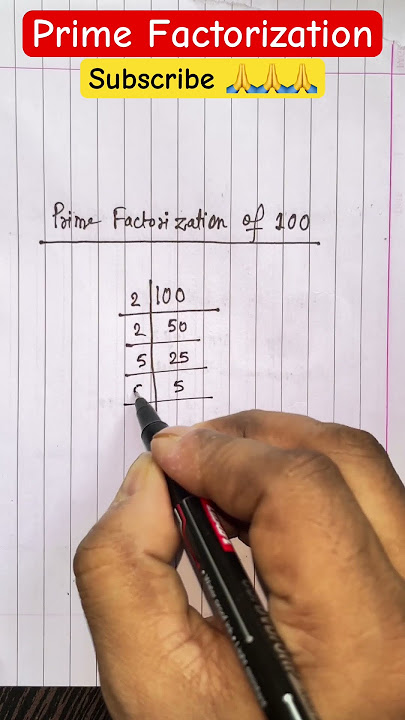 Prime Factorization
Subscribe 🙏🙏🙏
Prime Factorization of 100
2 100
2 50
5 25
5 5